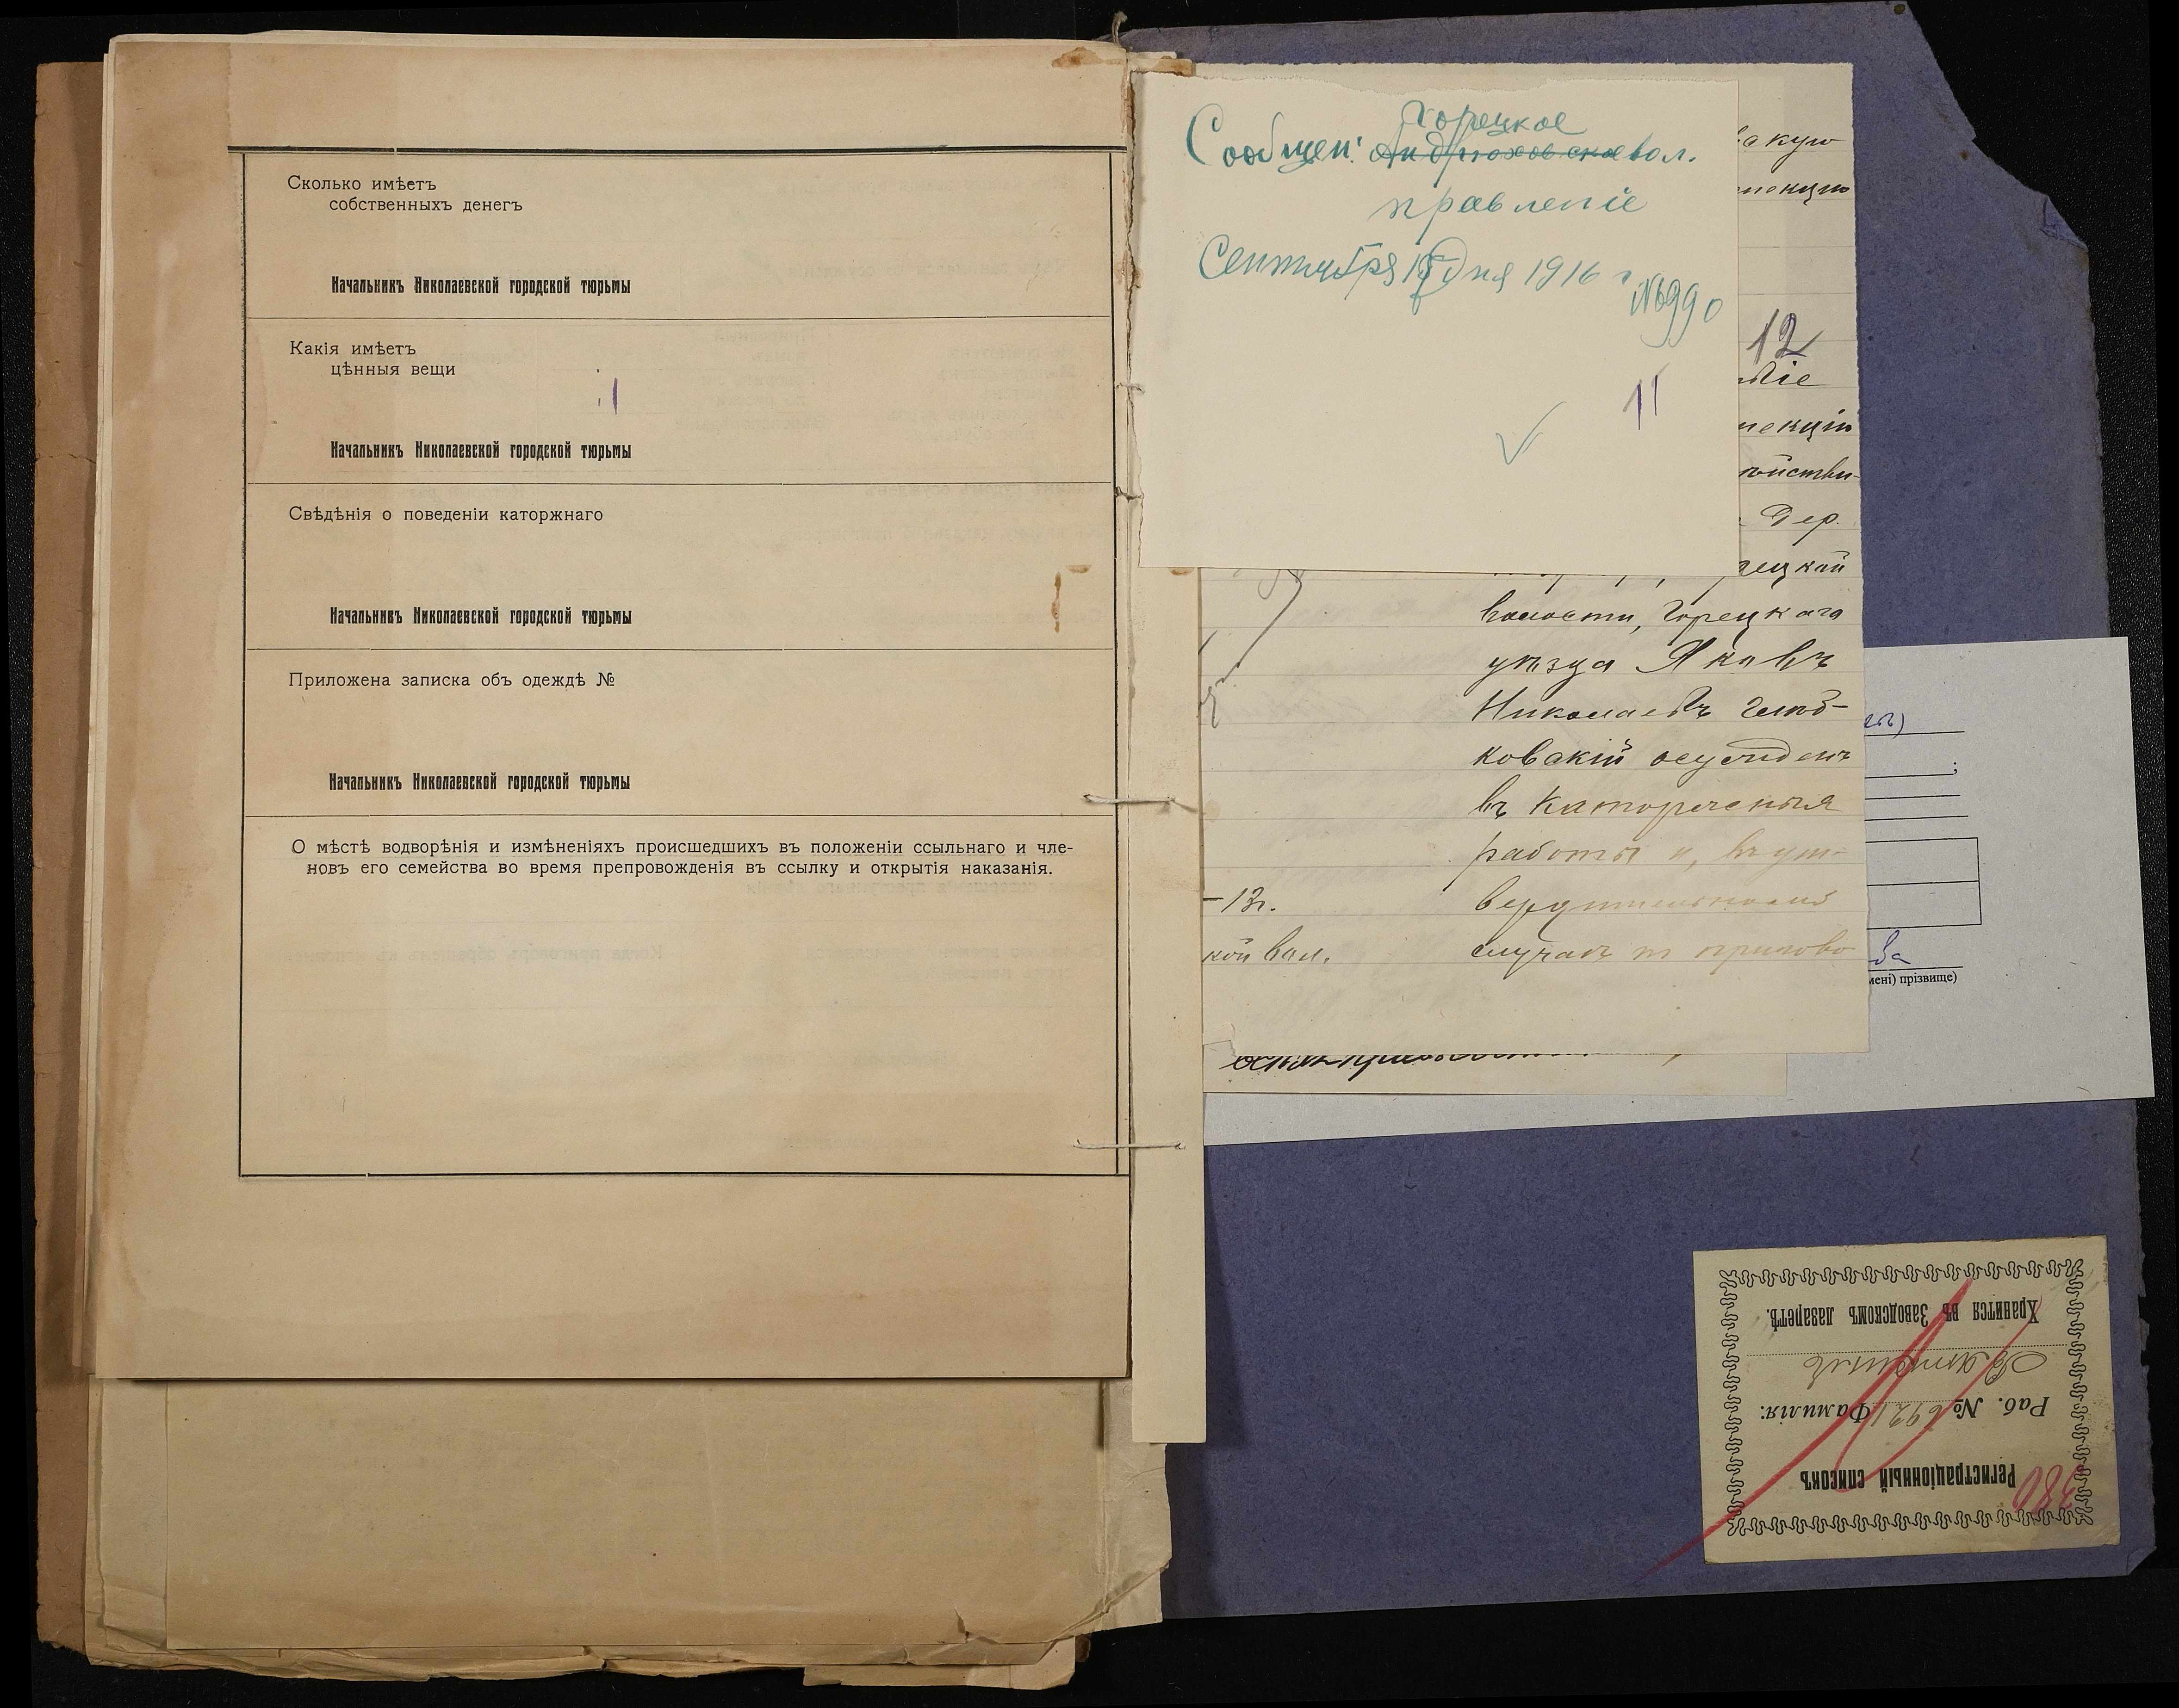 Сколько имѣетъ
собственныхъ денегъ
Начальникъ Николаевской городской тюрьмы
Какія имѣетъ
цѣнныя вещи
Начальникъ Николаевской городской тюрьмы
Свѣдѣнія о поведеніи каторжнаго
Начальникъ Николаевской городской тюрьмы
Приложена записка объ одеждѣ №
Начальникъ Николаевской городской тюрьмы
О мѣстѣ водворѣнія и измѣненіяхъ происшедшихъ въ положеніи ссыльнаго и чле-
новъ его семейства во время препровожденія въ ссылку и открытія наказанія.
Горецкое
Сообщен: вол.
правленіе
Сентября дня 1916 г
№990
11
12
Дер.
рецкой
волости, Горецкаго
уѣзда Яковъ
Николаевъ
осужденъ
въ Каторжныя
работы и, въ ут-
вердительномъ
случаѣ
-13г.
кой вол.
ва
мені) прізвище)
Регистраціонный списокъ
380
Раб. № 6921 Фамилія:
Хранится въ Заводскомъ лазаретѣ.